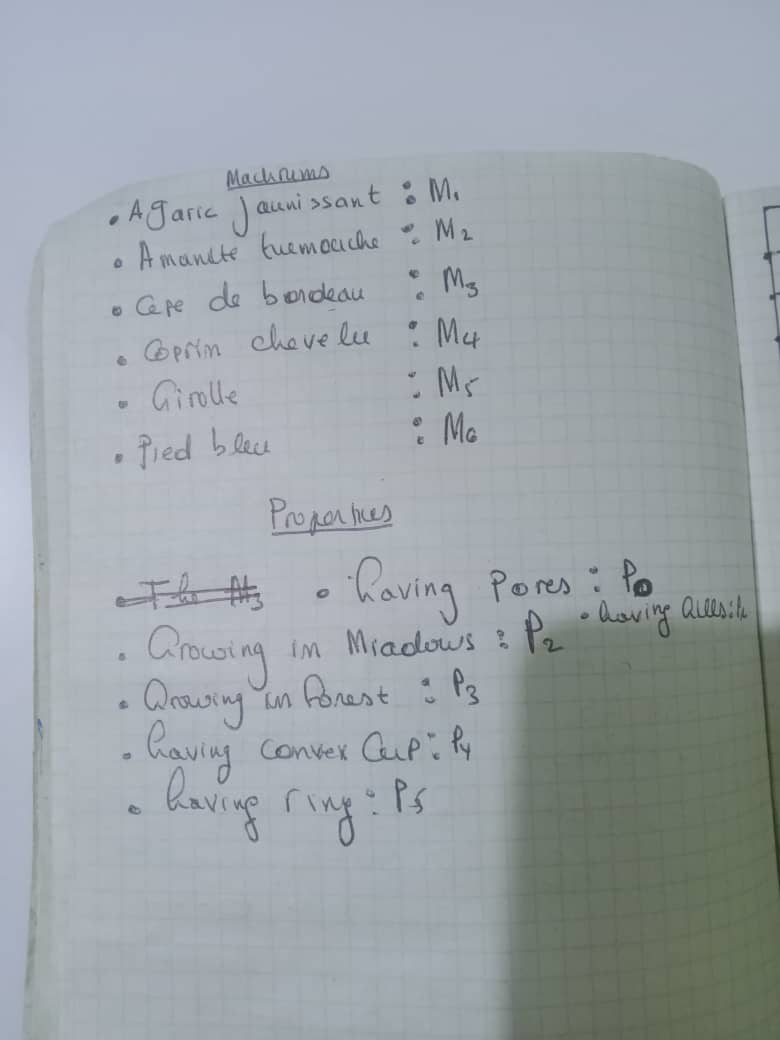 Machrums
• Agaric jaunissant : M1
• Amanite tuemouche : M2
• Cepe de bordeau : M3
• Coprin chevelu : M4
• Girolle : M5
• Pied bleu : M6
Properties
• The M3 • having Pores : P0
• Growing in Miadows : P2 • having
• Growing in Forest : P3
• having convex Cup : P4
• having ring : P5